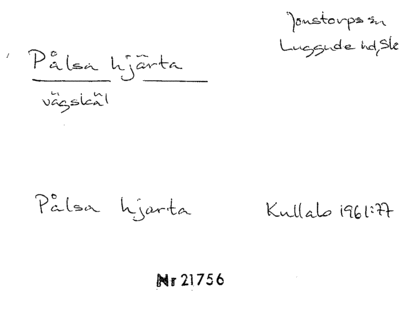 Jonstorps sn
Luggude hd, Sk
Pålsa hjärta
vägskäl
Pålsa hjarta
Kullabo 1961:77
Nr 21756